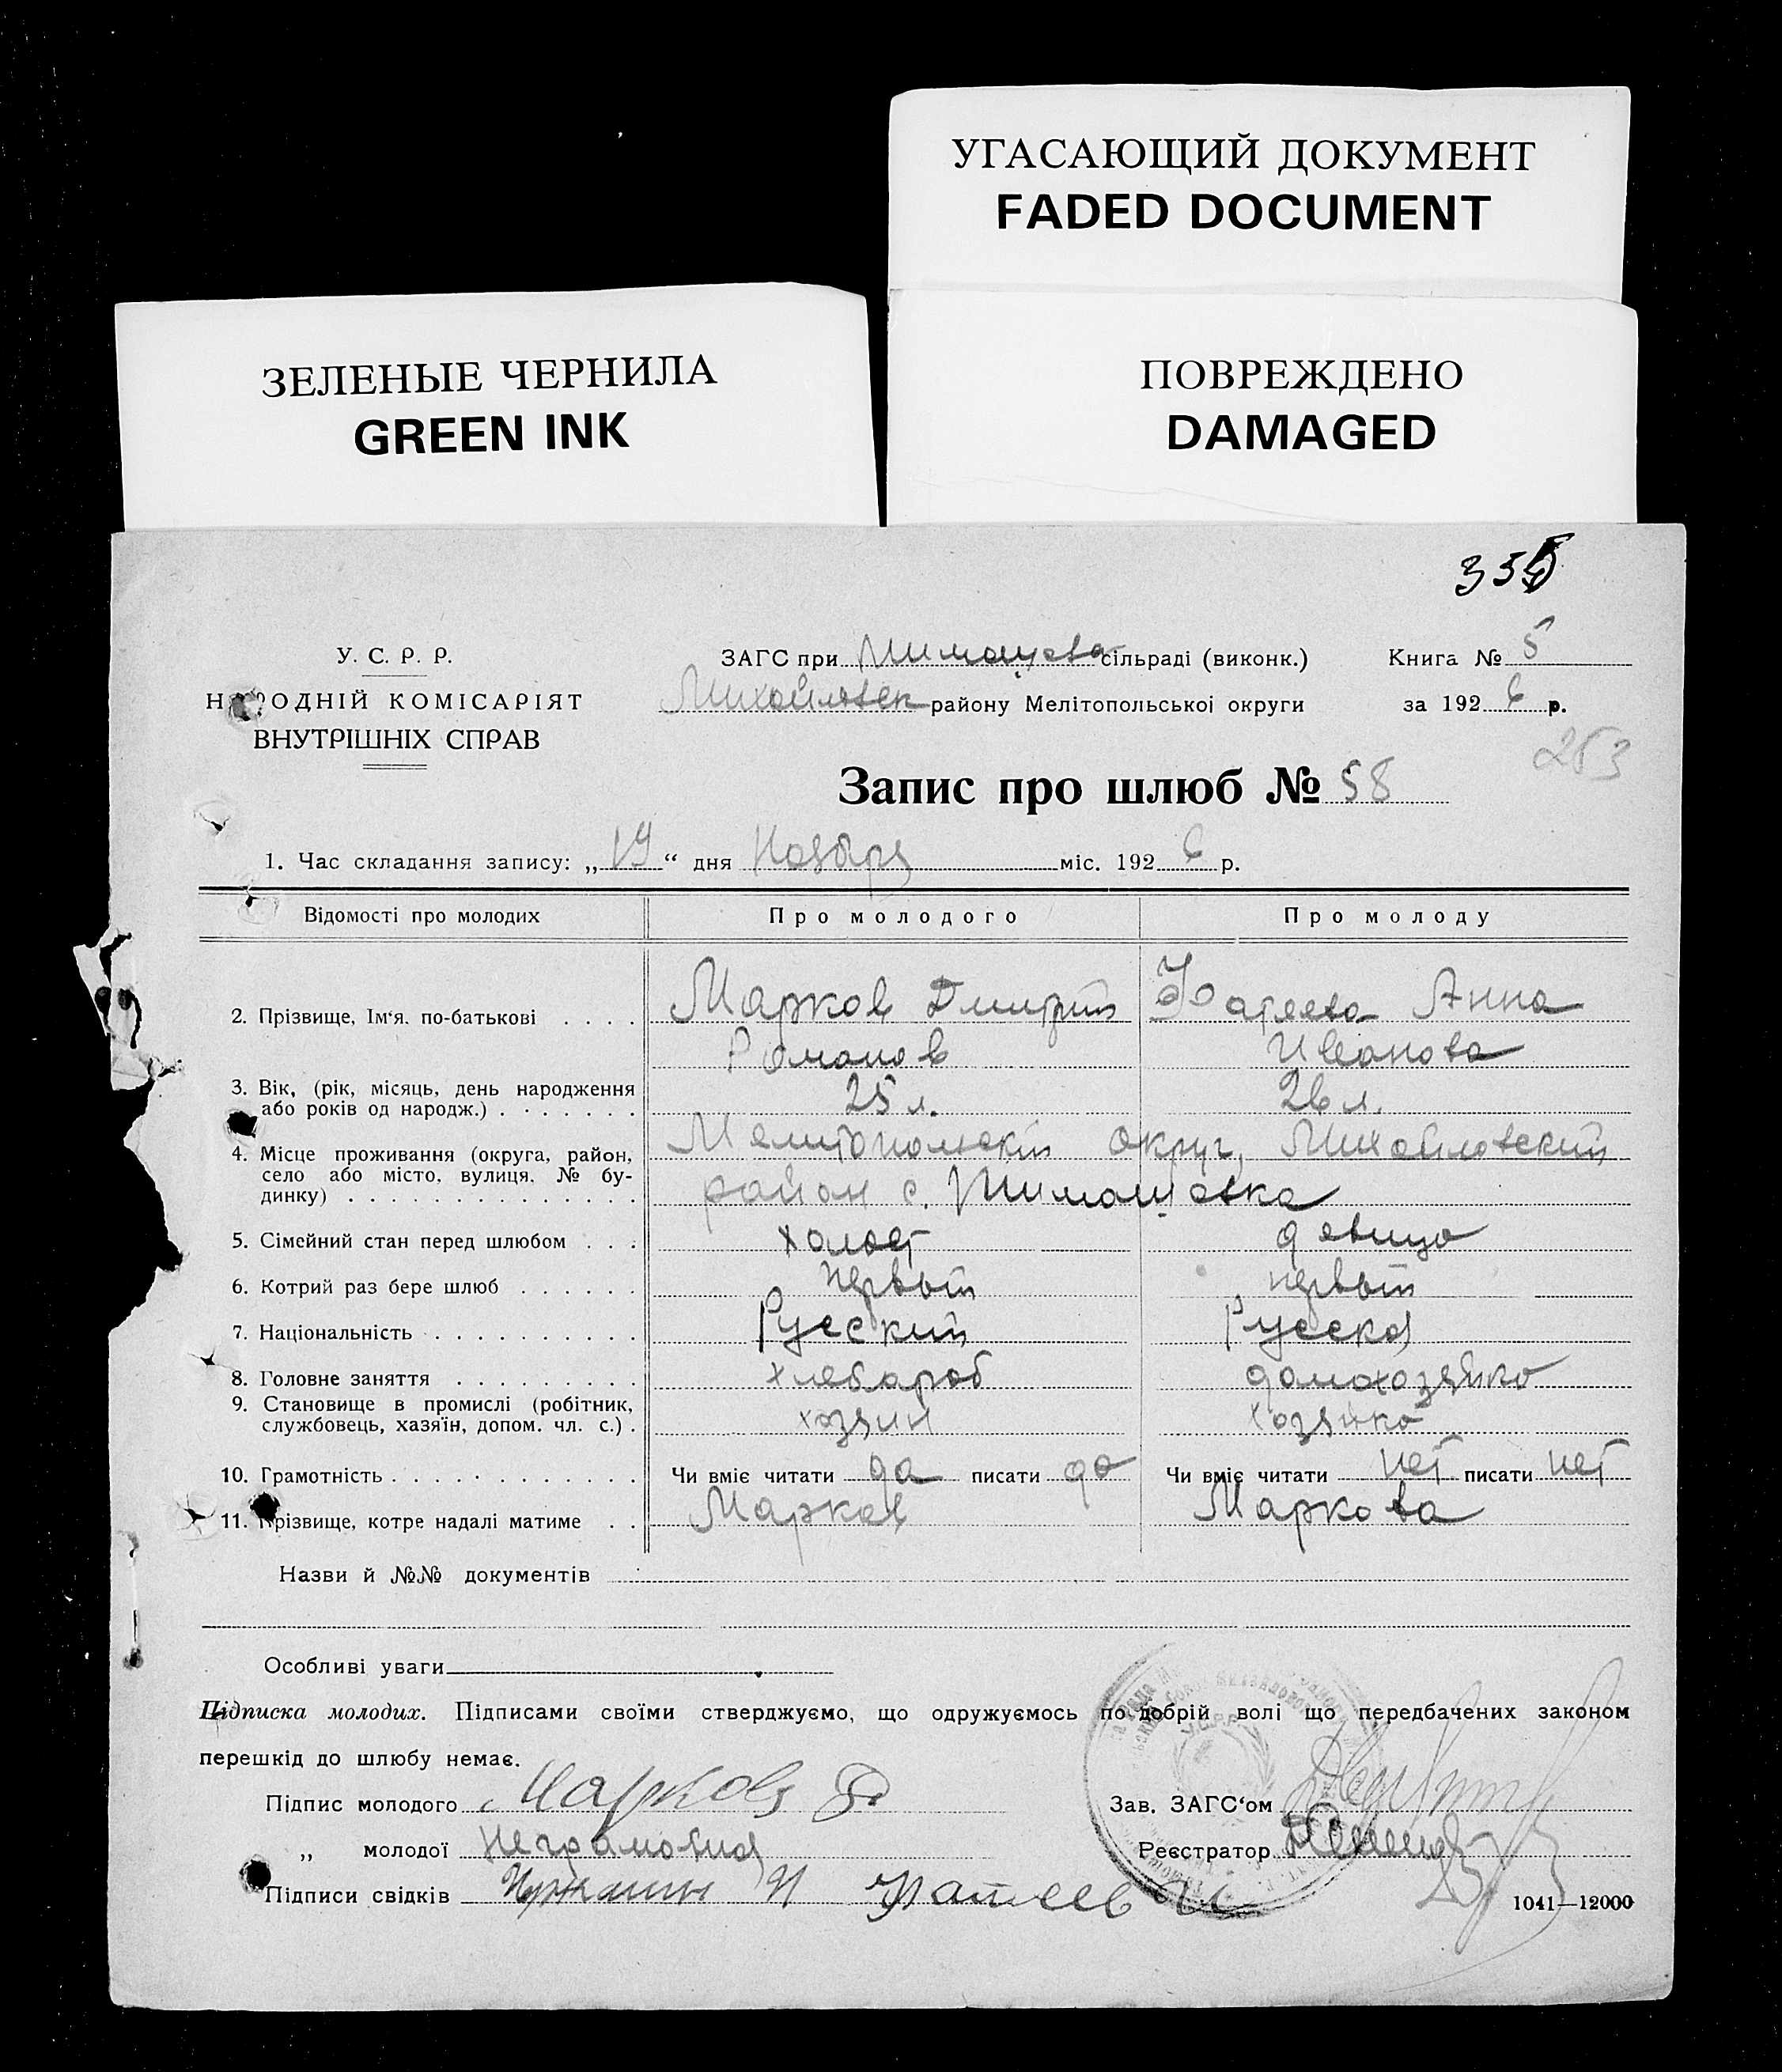 УГАСАЮЩИЙ ДОКУМЕНТ
FADED DOCUMENT
ЗЕЛЕНЫЕ ЧЕРНИЛА
GREEN INK
ПОВРЕЖДЕНО
DAMAGED
У. С. Р. Р.
НАРОДНІЙ КОМІСАРІЯТ
ВНУТРІШНІХ СПРАВ
ЗАГС при Тимошевс сільраді (виконк.)
Книга № 5
Михайловск району Мелітопольської округи
за 192 6 р.
253
Запис про шлюб № 58
1. Час складання запису: „ 19 “ дня Ноября міс. 192 6 р.
Відомості про молодих Про молодого Про молоду
2. Прізвище, Ім‘я. по-батькові . . . . Марков Дмитрий Фатеева Анна
Романов Иванова
3. Вік, (рік, місяць, день народження
або років од народж.) . . . . . . . 25 л. 26 л.
4. Місце проживання (округа, район, Мелитопольский округ, Михайловский
село або місто, вулиця. № бу-
динку) . . . . . . . . . . . . . . район с. Тимошевка
5. Сімейний стан перед шлюбом . . . холост девица
6. Котрий раз бере шлюб . . . . . . первый первый
7. Національність . . . . . . . . . . Русский Русская
8. Головне заняття . . . . . . . . . хлебароб домохозяйка
9. Становище в промислі (робітник,
службовець, хазяїн, допом. чл. с.) . хозяин хозяйка
10. Грамотність . . . . . . . . . . . . Чи вміє читати да писати да Чи вміє читати нет писати нет
11. Прізвище, котре надалі матиме . . Марков Маркова
Назви й №№ документів
Особливі уваги
Підписка молодих. Підписами своїми стверджуємо, що одружуємось по добрій волі що передбачених законом
перешкід до шлюбу немає.
Підпис молодого Марков Д.
Зав. ЗАГС‘ом
„ молодої Неграмотная
Реєстратор
Підписи свідків И Фатеев
1041—12000